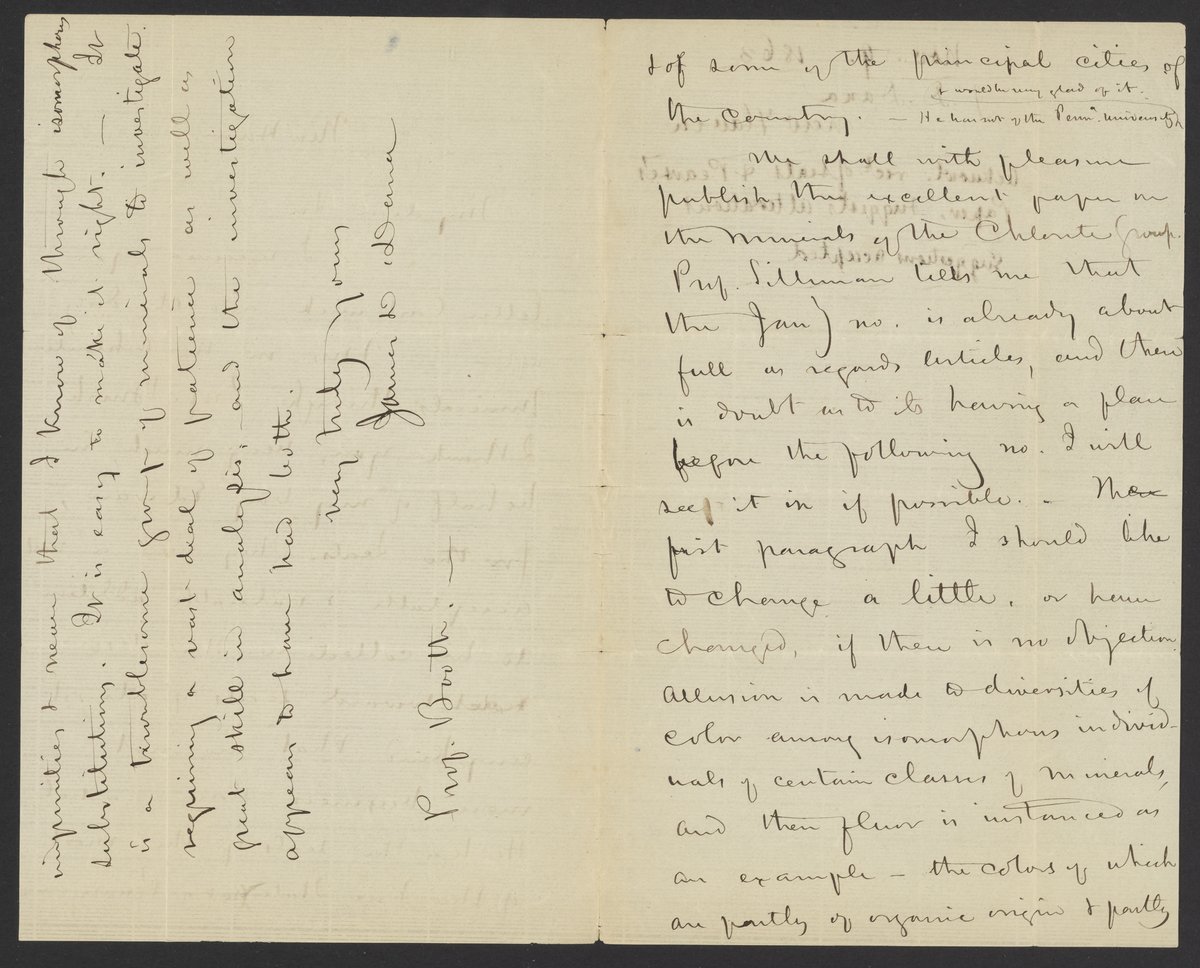 & of some of the principal cities of
& would be very glad of it.
the country. — He has not of the Penn. University
We shall with pleasure
publish the excellent paper on
the Minerals of the Chlorite Group.
Prof. Silliman tells me that
the Jan) no. is already about
full as regards articles, and there
is doubt as to its having a place
before the following no. I will
see it in if possible. - The
first paragraph I should like
to change a little, or have
changed, if there is no objection.
Allusion is made to diversities of
color among isomorphous individ-
uals of certain classes of minerals,
and then fluor is instanced as
an example — the colors of which
are partly of organic origin & partly
impurities & never that I know of through isomorphous
substitutions. It is easy to make it right. — It
is a troublesome group of minerals to investigate.
requiring a vast deal of patience as well as
great skill in analysis; and the investigation
appears to have had both.
very truly yours
James D Dana
Prof. Booth. —